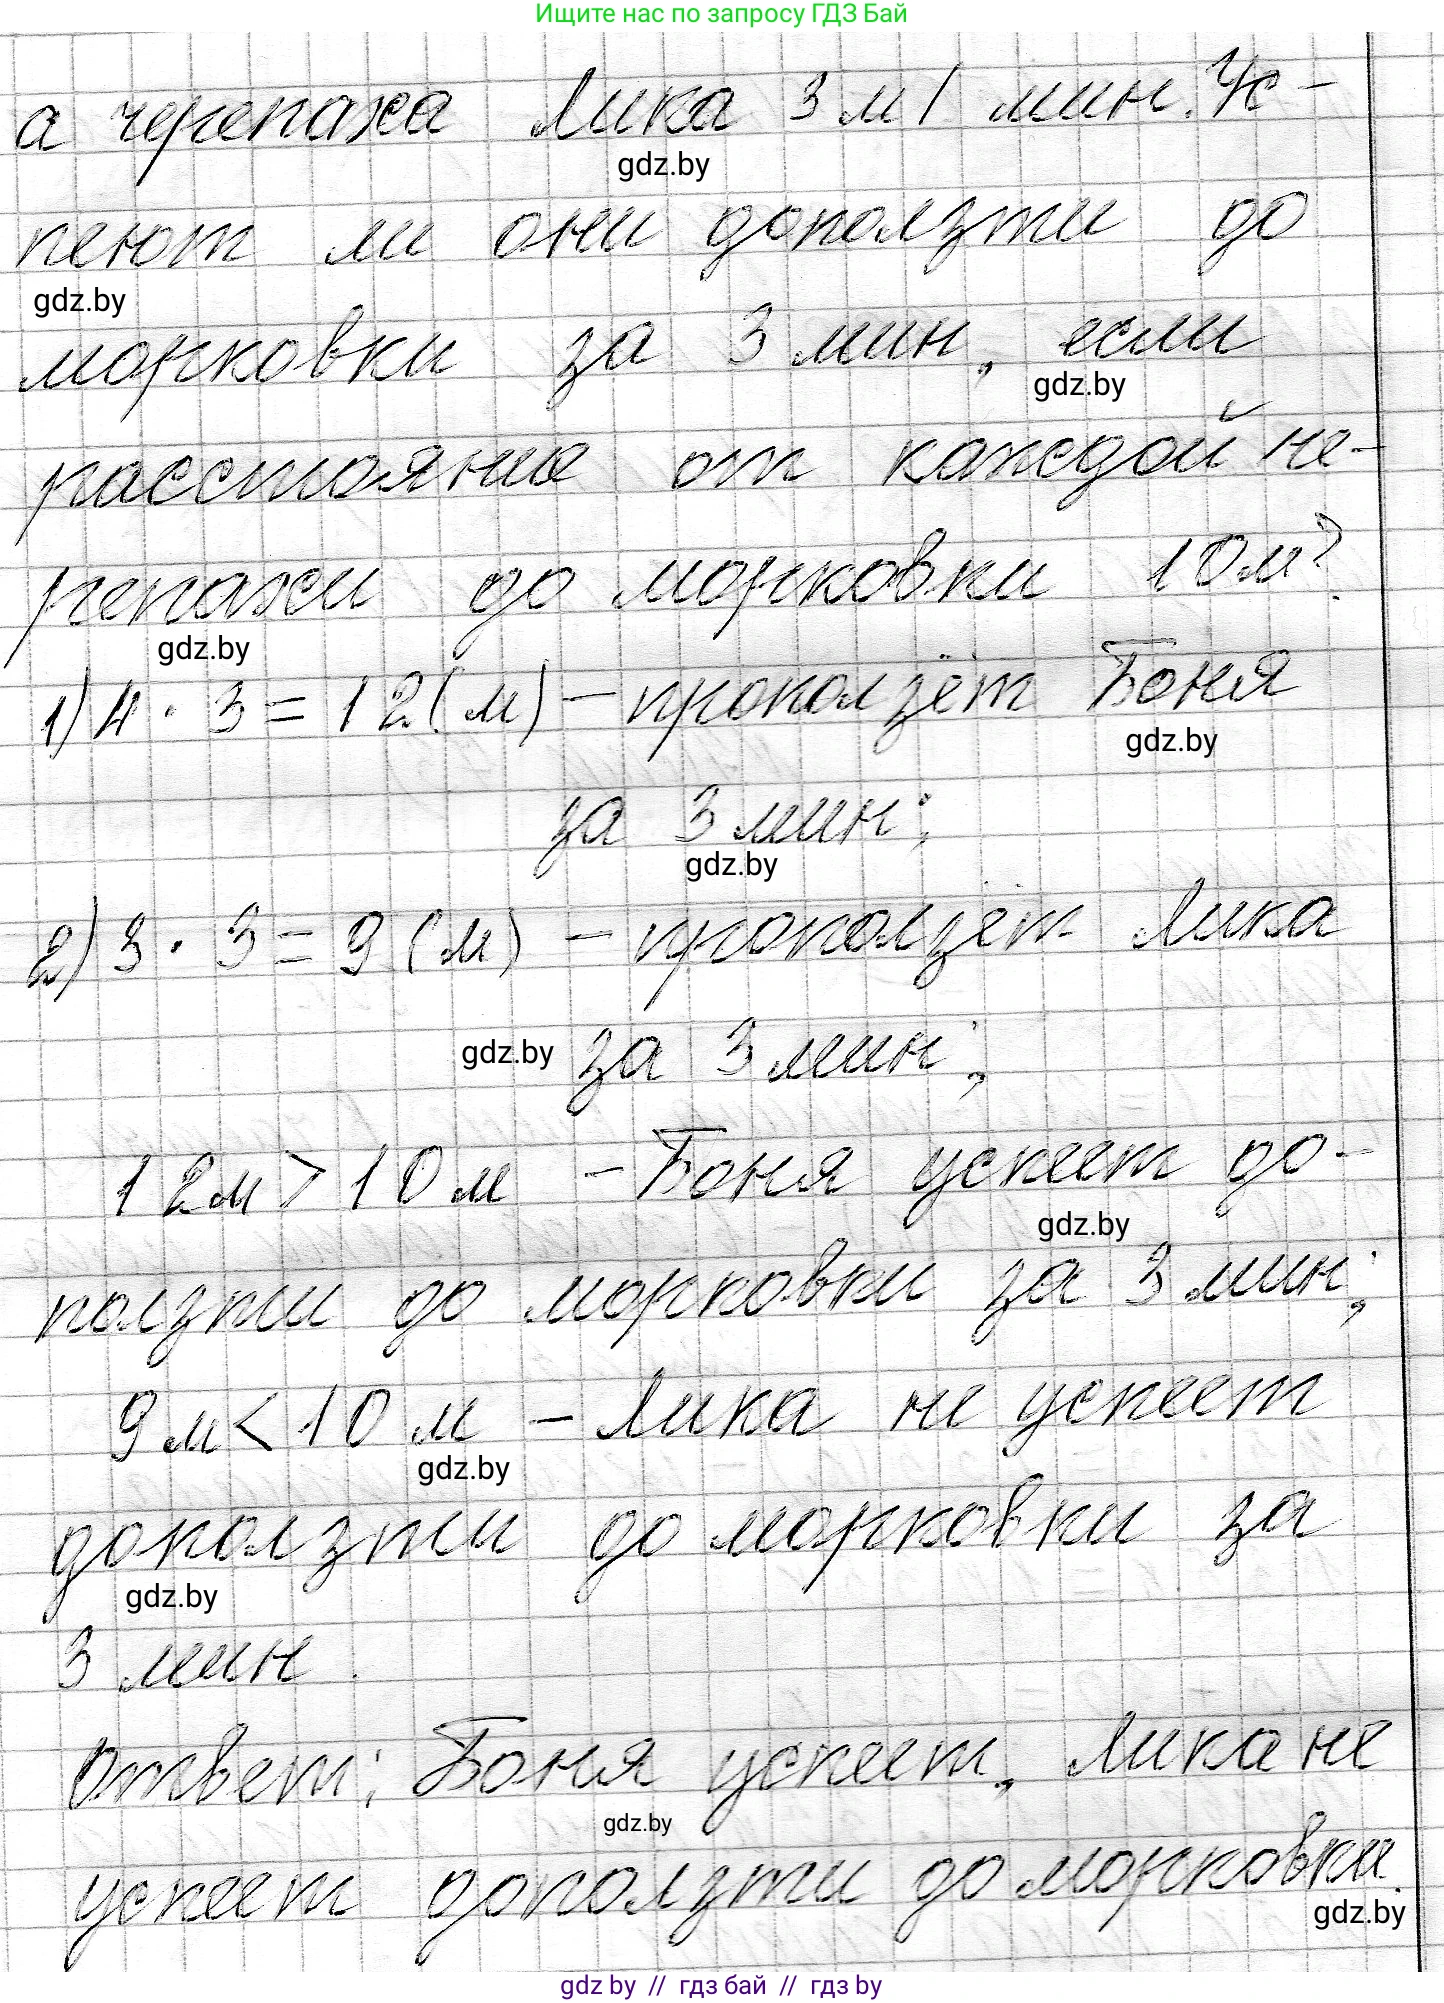 Ищите нас по запросу ГДЗ Бай
а черепаха Лика 3 м/мин. Ус-
gdz.by
пеют ли они доползти до
gdz.by
морковки за 3 мин, если
gdz.by
расстояние от каждой че-
репахи до морковки 10 м?
gdz.by
1) 4 · 3 = 12 (м) – проползёт Боня
gdz.by
за 3 мин;
gdz.by
2) 3 · 3 = 9 (м) – проползёт Лика
gdz.by за 3 мин;
12 м > 10 м – Боня успеет до-
gdz.by
ползти до морковки за 3 мин;
9 м < 10 м – Лика не успеет
gdz.by
доползти до морковки за
gdz.by
3 мин.
Ответ: Боня успеет, Лика не
gdz.by
успеет доползти до морковки.
gdz.by
gdz by // гдз бай // гдз by